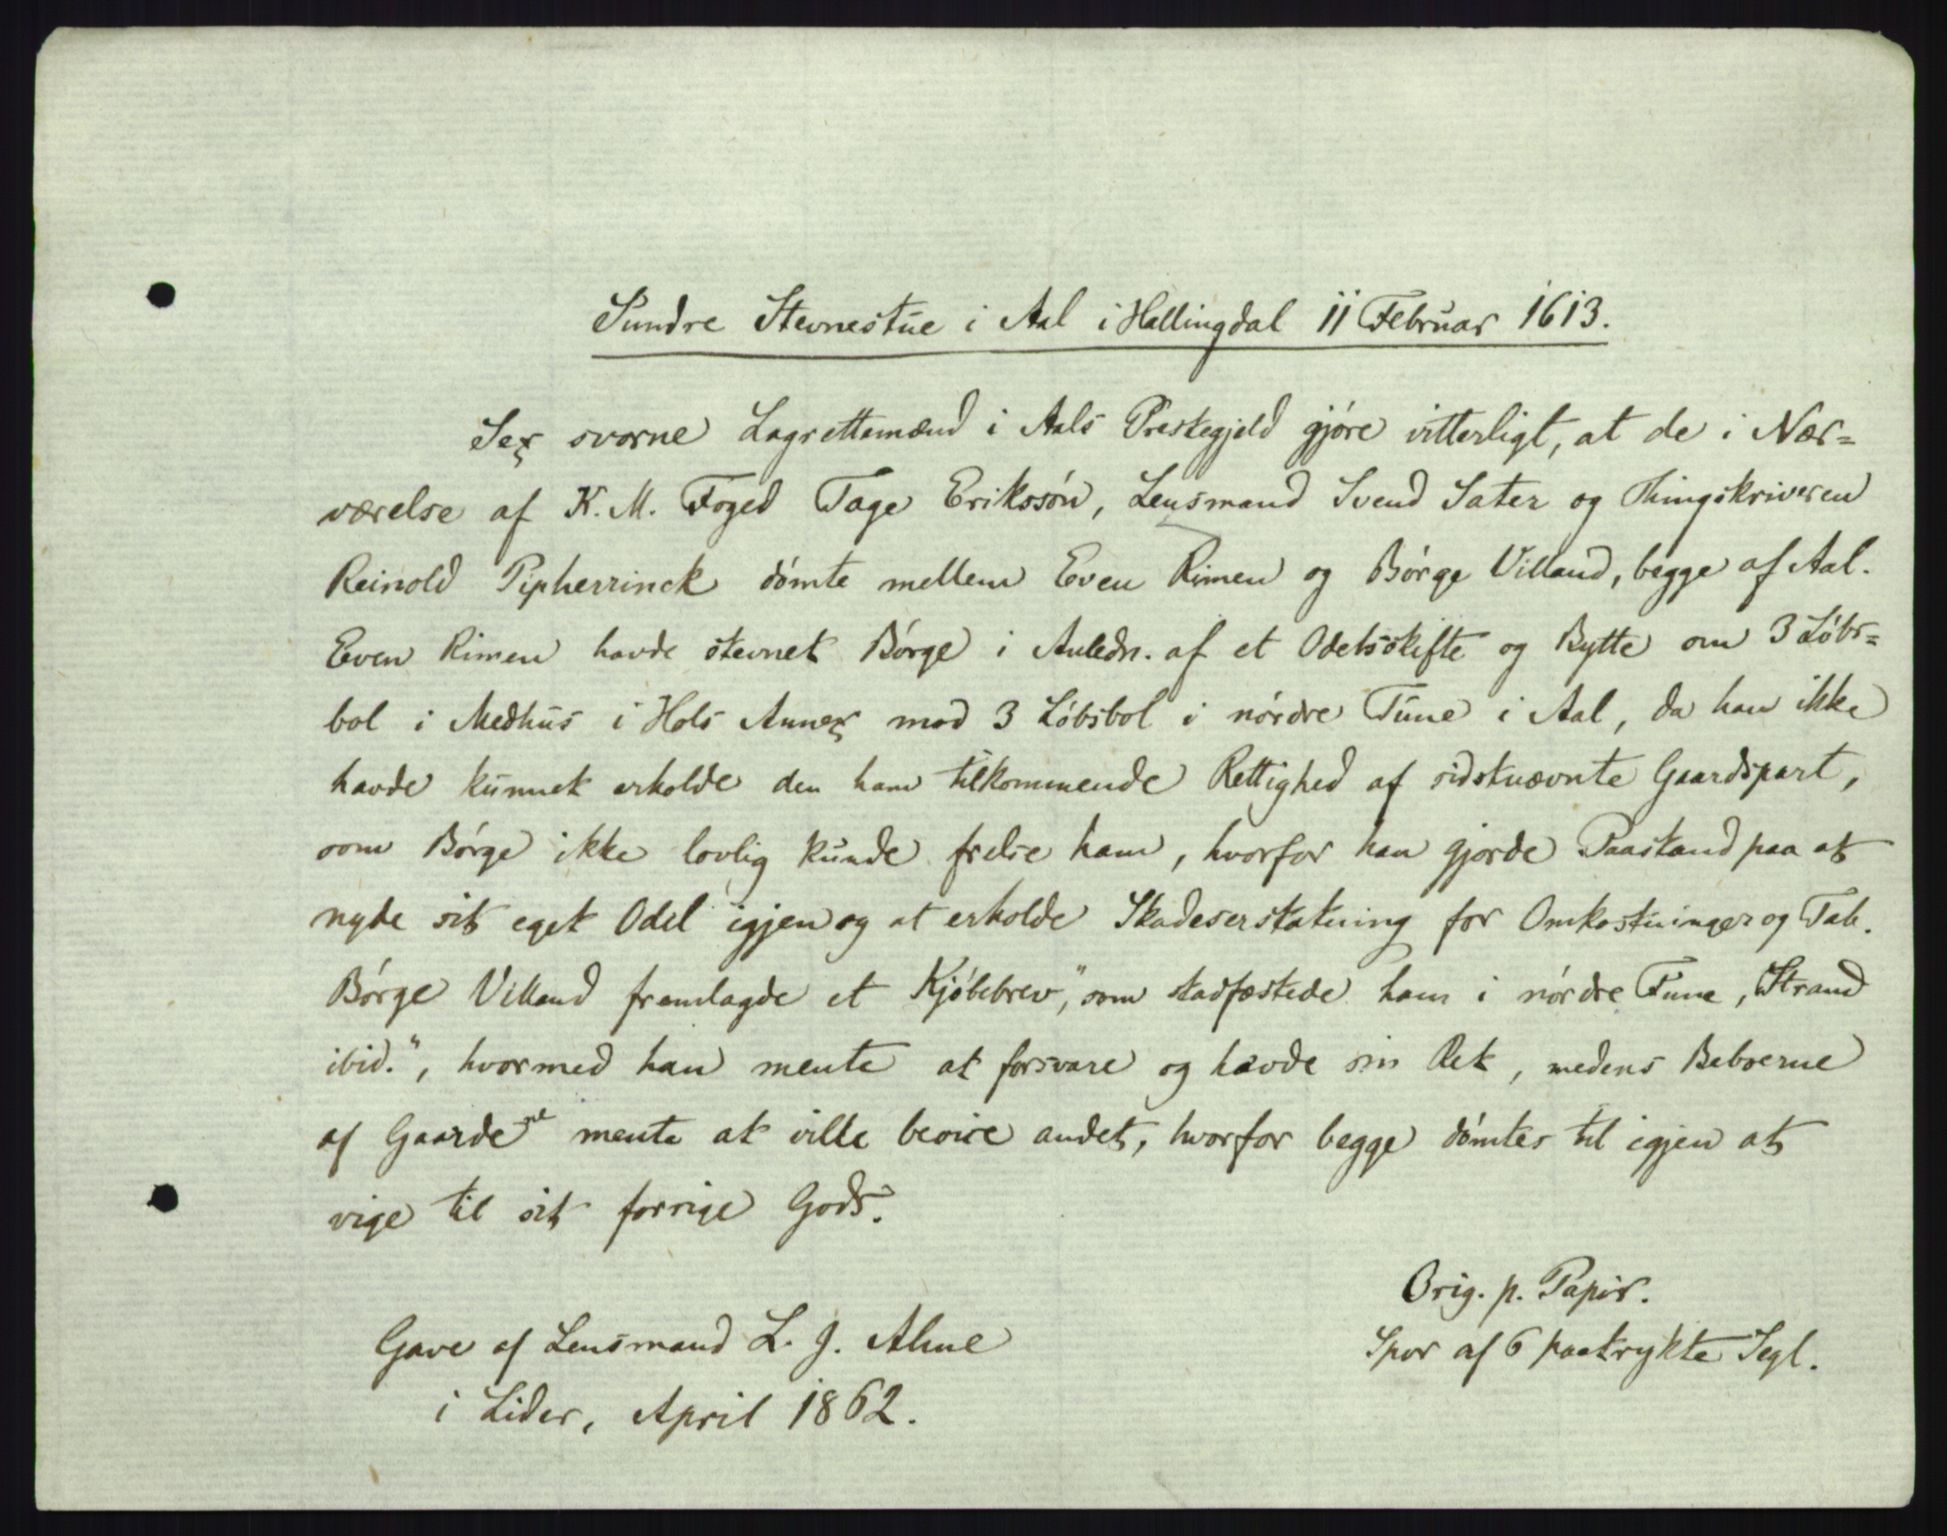 Sundre Stevnestue i Aal i Hallingdal 11 Februar 1613.
Sex svorne Lagrettemænd i Aals Prestegjeld gjøre vitterligt, at de i Nær=
værelse af K. M. Foged Tage Erikssøn, Lensmand Svend Sater og Thingskriveren
Reinold Pipherrinck dømte mellem Even Rimen og Børge Villand, begge af Aal.
Even Rimen havde stevnet Børge i Anledn. af et Odelsskifte og Bytte om 3 Løbs=
bol i Medhus i Hols Annex mod 3 Løbsbol i nørdre Tune i Aal, da han ikke
havde kunnet erholde den ham tilkommende Rettighed af sidstnævnte Gaardspart,
som Børge ikke lovlig kunde frelse ham, hvorfor han gjorde Paastand paa at
nyde sit eget Odel igjen og at erholde Skadeserstatning for Omkostninger og Tab.
Børge Villand fremlagde et Kjøbebrev, "som stadfæstede ham i nørdre Tune, Strand
ibid.", hvormed han mente at forsvare og hævde sin Ret, medens Beboerne
af Gaardene mente at ville bevise andet, hvorfor begge dømtes til igjen at
vige til sit forrige Gods.
Orig. p. Papir.
Spor af 6 paatrykte Segl.
Gave af Lensmand L. J. Alme
i Lider, April 1862.